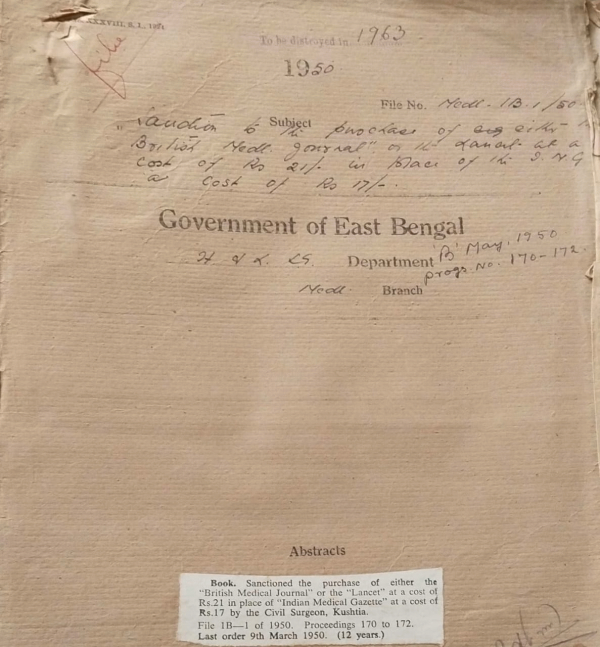 XXXVIII, R. I., 18
To be distroyed in 1963.
file
1950
File No. Medl. 1B-1/50
Subject
"Sanction to the purchase of either
British Medl. Journal" or the Lancet at a
cost of Rs 21/- in place of the I.M.G
a cost of Rs 17/-.
Government of East Bengal
H & L. S.G. Department 'B' May, 1950
Medl. Branch Progs. No. 170-172.
Abstracts
Book. Sanctioned the purchase of either the
"British Medical Journal" or the "Lancet" at a cost of
Rs.21 in place of "Indian Medical Gazette" at a cost of
Rs.17 by the Civil Surgeon, Kushtia.
File 1B—1 of 1950. Proceedings 170 to 172.
Last order 9th March 1950. (12 years.)